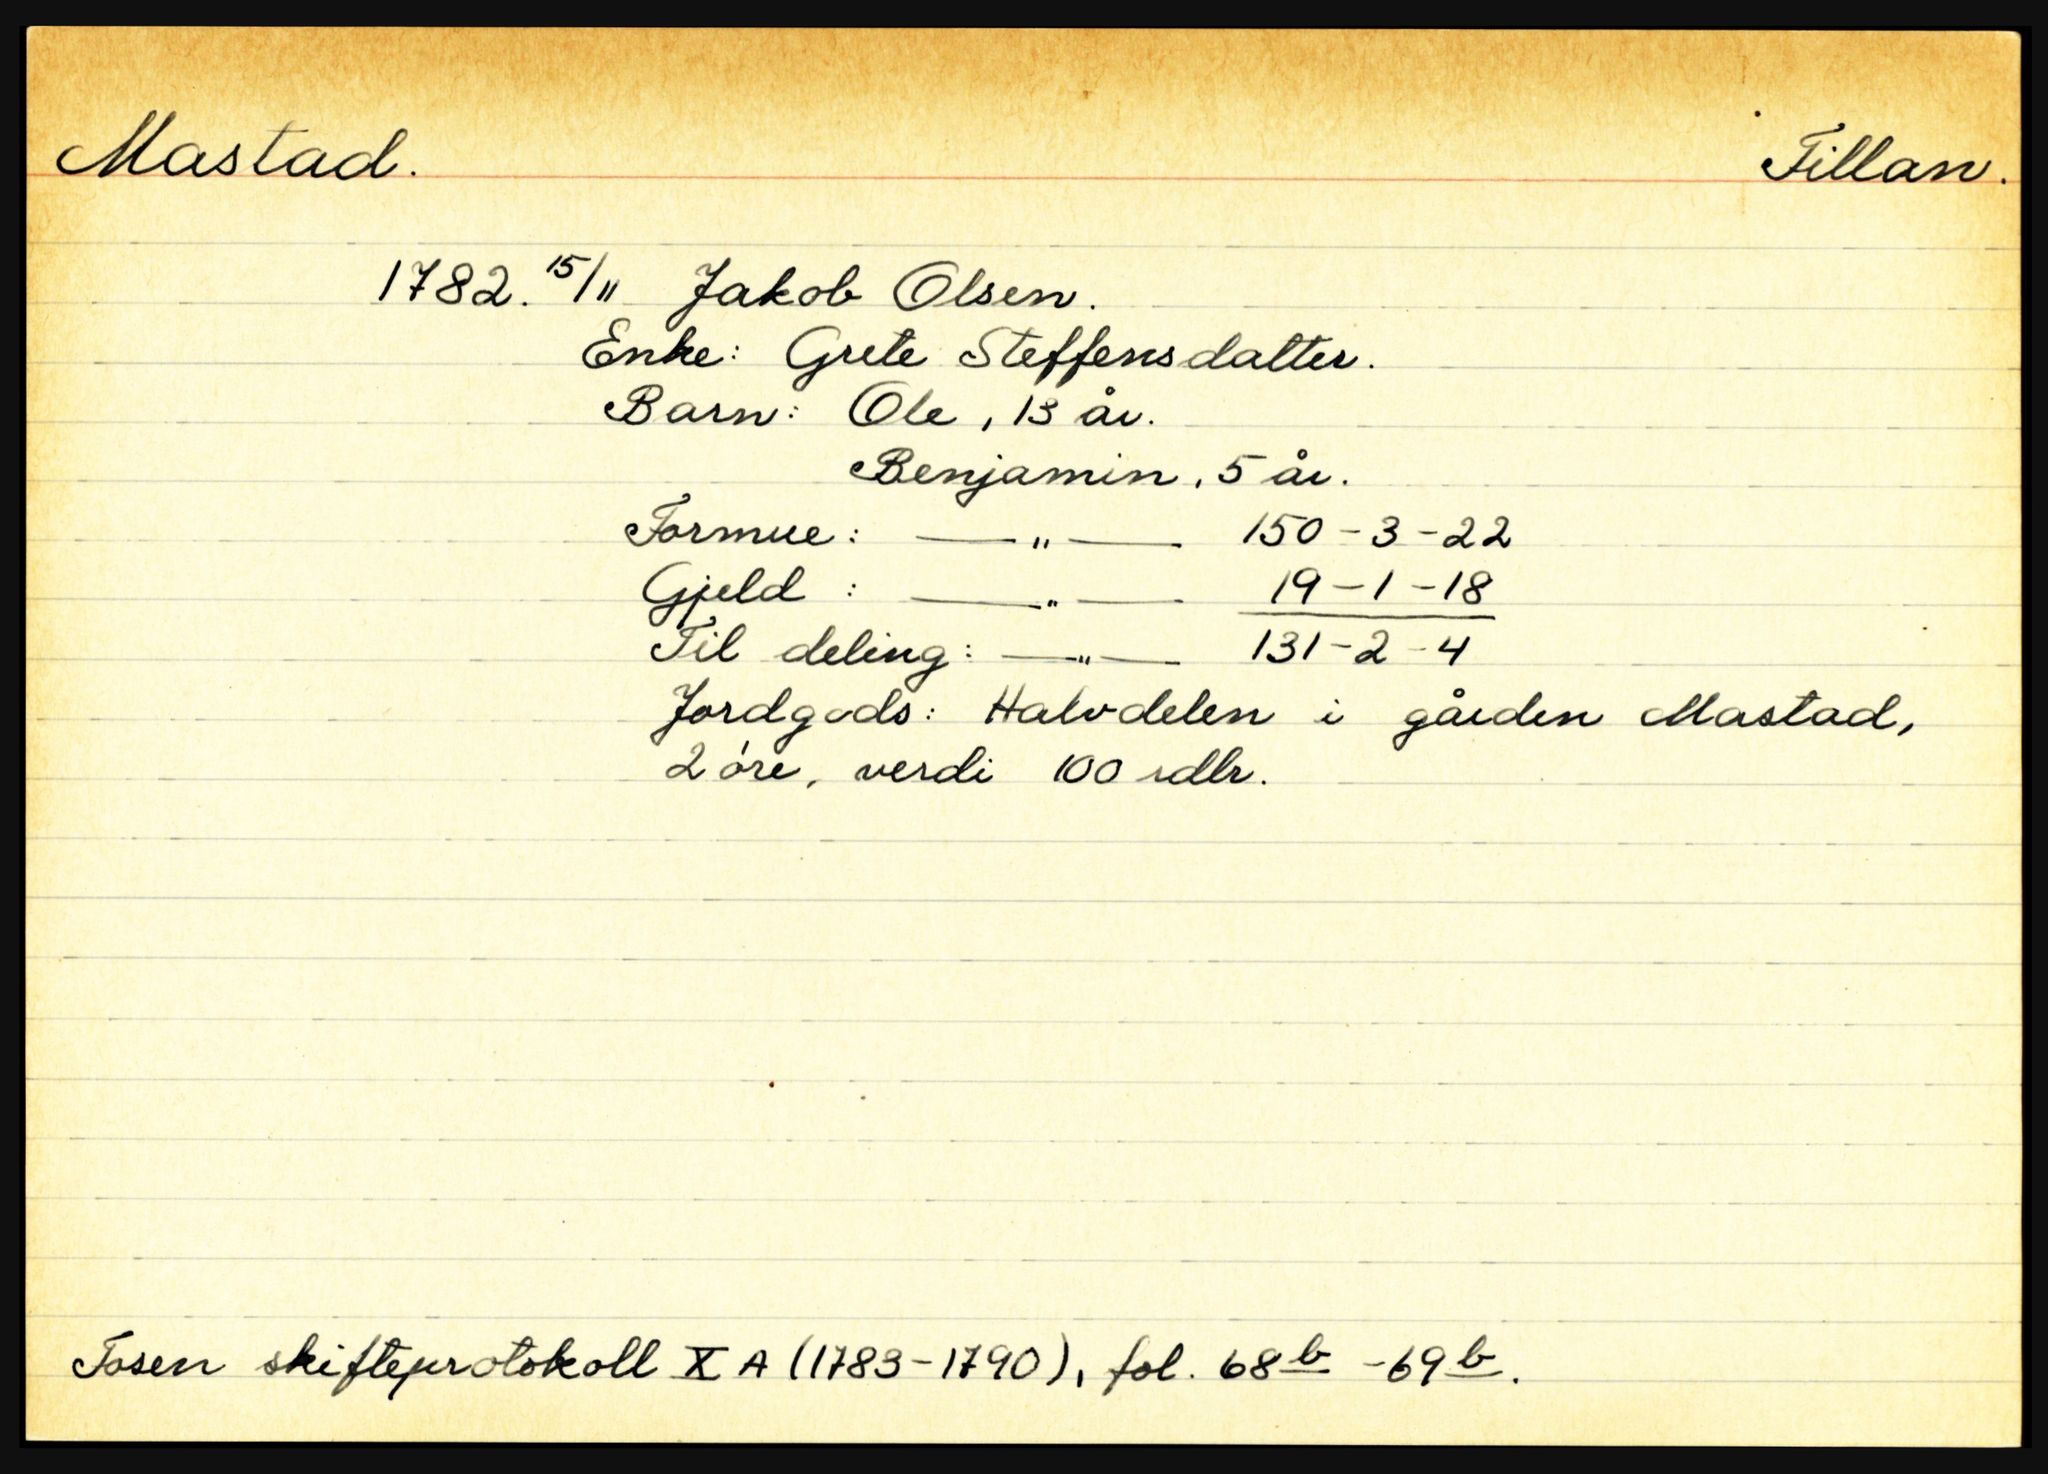 Mastad. Fillan.
1782. 15/11 Jakob Olsen.
Enke: Grete Steffensdatter.
Barn: Ole, 13 år.
Benjamin, 5 år.
Formue: —"— 150-3-22
Gjeld: —"— 19-1-18
Til deling: —"— 131-2-4
Jordgods: Halvdelen i gården Mastad,
2 øre, verdi 100 rdlr.
Fosen skifteprotokoll X A (1783-1790), fol. 68b -69b.